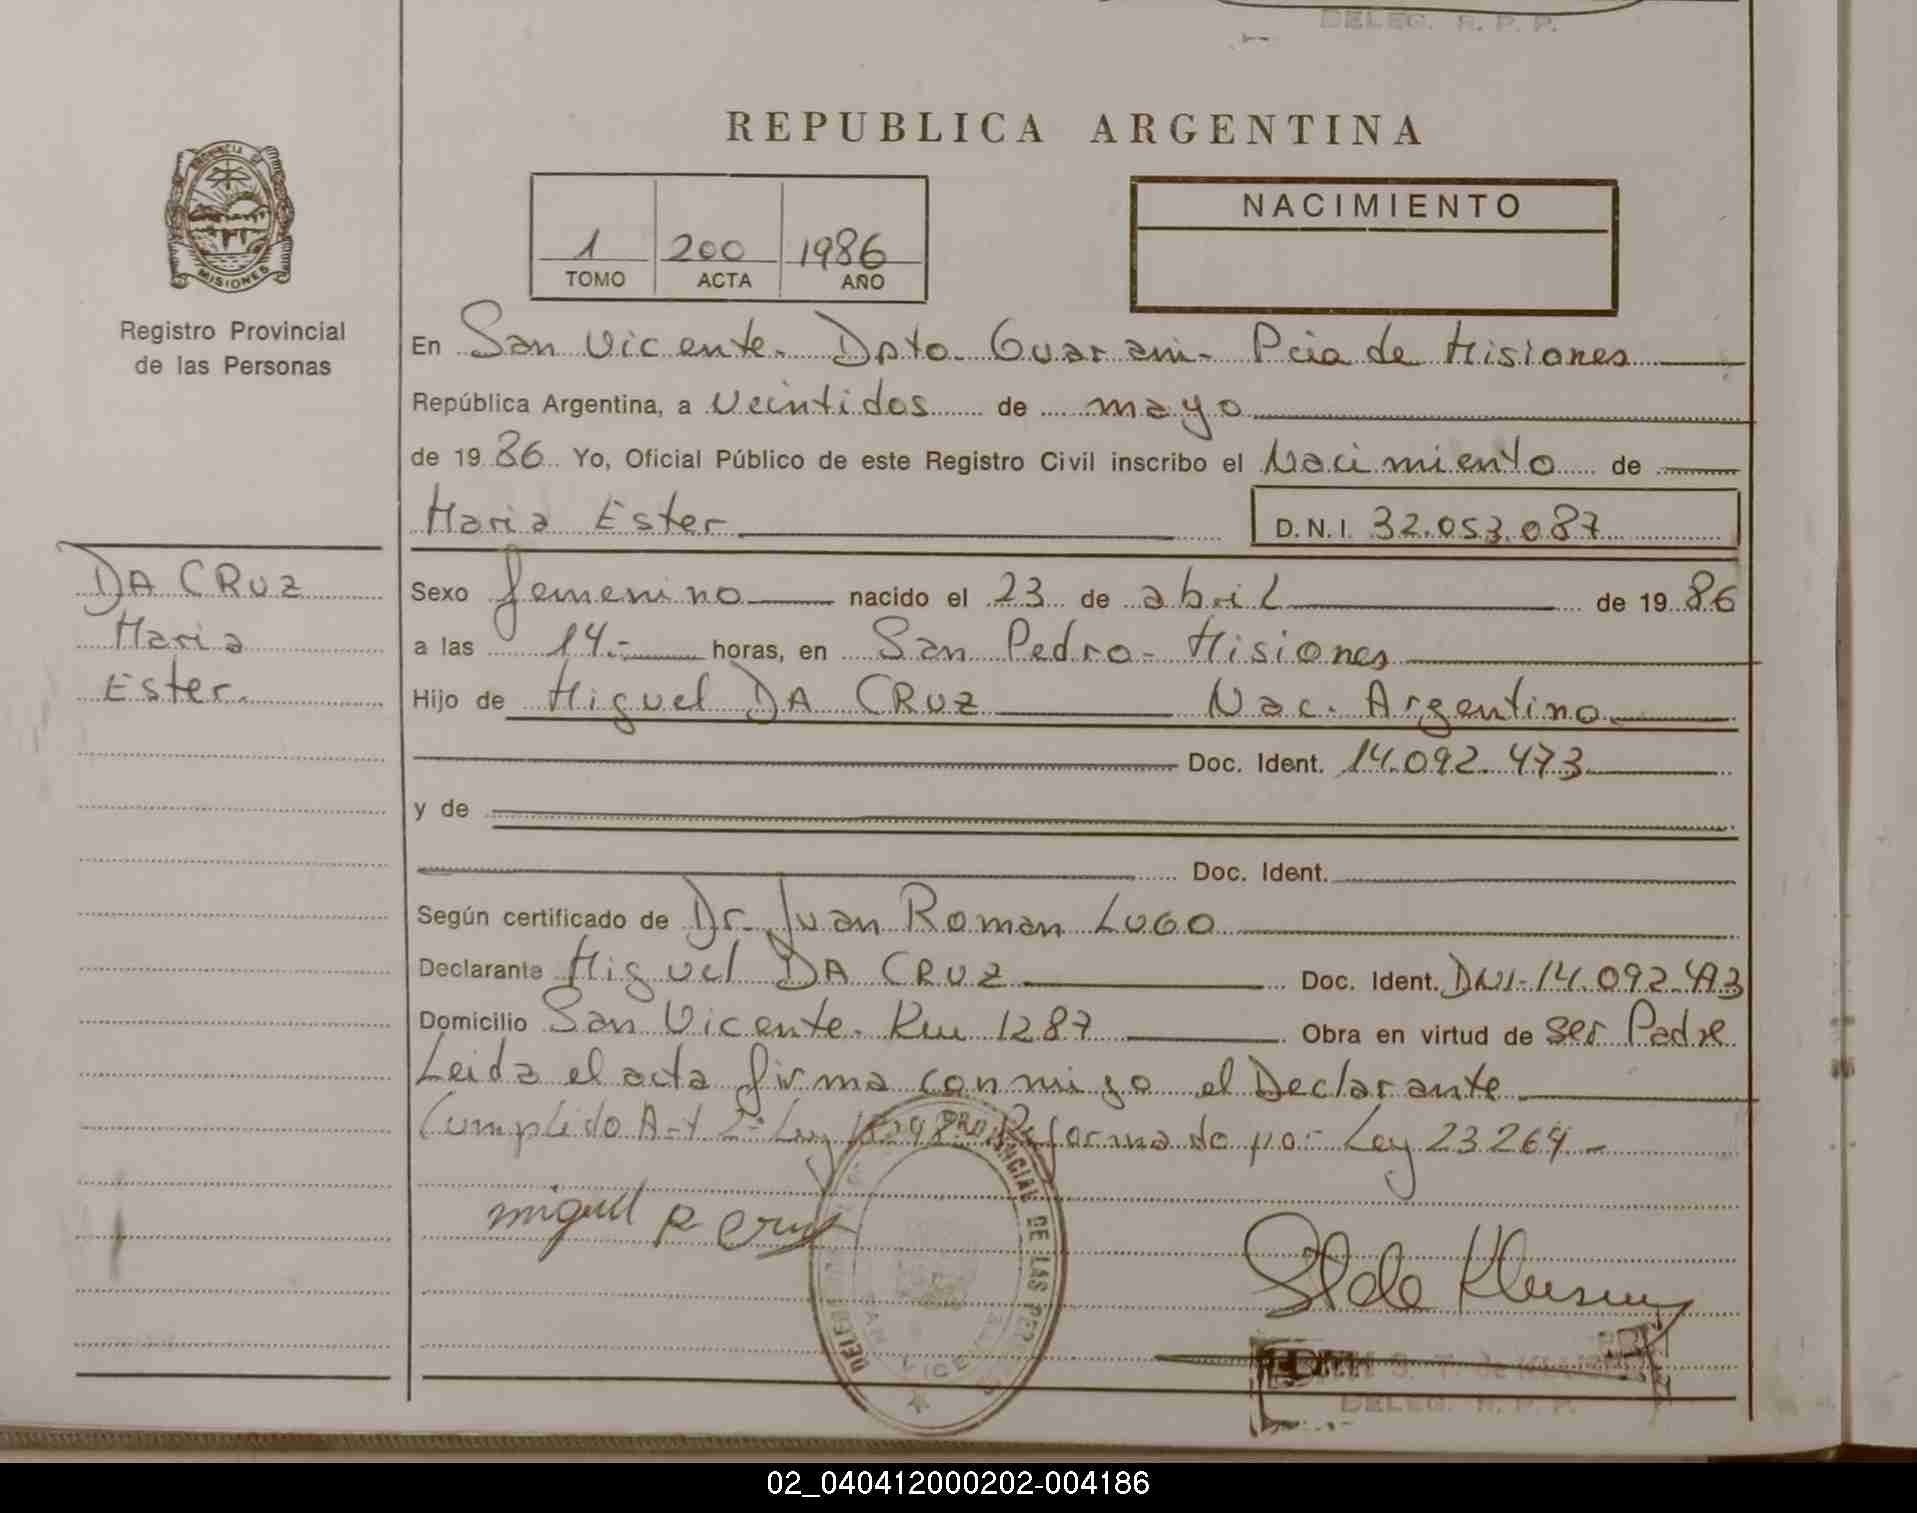 DELEG. R. P. P.
REPUBLICA ARGENTINA
PROVINCIA DE
MISIONES
Registro Provincial
de las Personas
1 200 1986
TOMO ACTA AÑO
NACIMIENTO
En San Vicente. Dpto. Guarani. Pcia de Misiones
República Argentina, a Veintidos de mayo
de 19 86 Yo, Oficial Público de este Registro Civil inscribo el Nacimiento de
Maria Ester D.N.I. 32.053.087
DA CRUZ
Maria
Ester.
Sexo femenino nacido el 23 de abril de 19 86
a las 14.- horas, en San Pedro - Misiones
Hijo de Miguel DA CRUZ Nac. Argentino
Doc. Ident. 14.092.473
y de
Doc. Ident.
Según certificado de Dr. Juan Roman LUGO
Declarante Miguel DA CRUZ Doc. Ident. DNI-14.092.473
Domicilio San Vicente. Km 1287 Obra en virtud de ser Padre
Leida el acta firma conmigo el Declarante
Cumplido Art 2º Ley Reformado por Ley 23264.-
miguel Cruz
DE LAS
DELEG. R. P. P.
02_040412000202-004186